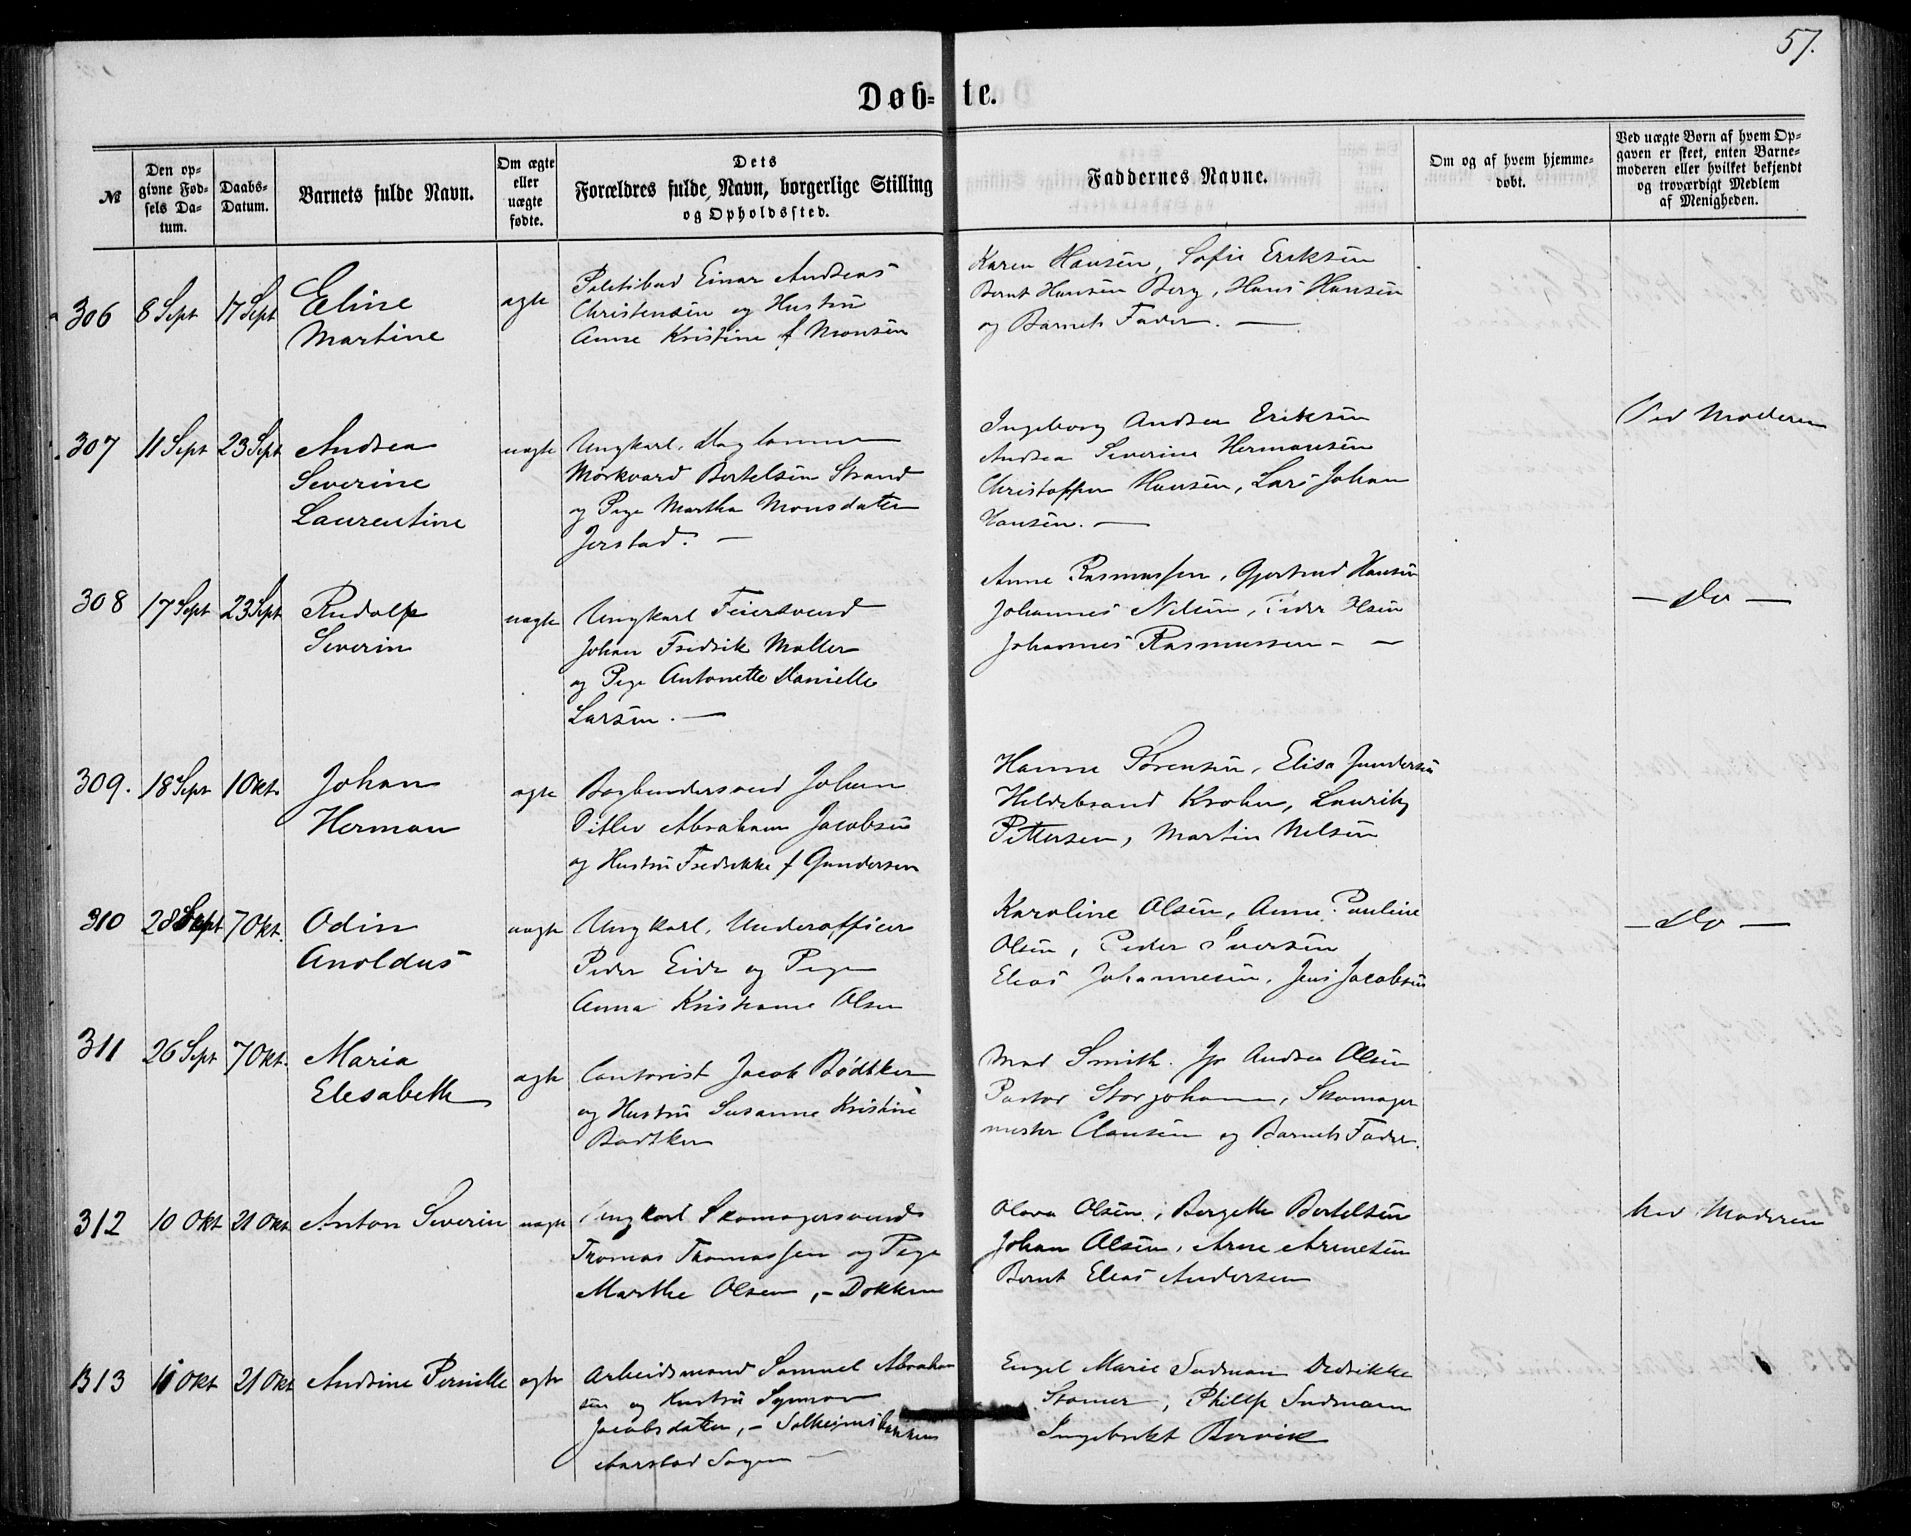 57.
Døb= te.
№
Den op=
givne Fød=
sels Da=
tum.
Daabs=
Datum.
Barnets fulde Navn.
Om ægte
eller
uægte
fødte.
Dets
Forældres fulde Navn, borgerlige Stilling
og Opholdssted.
Faddernes Navne.
Om og af hvem hjemme=
døbt.
Ved uægte Børn af hvem Op=
gaven er skeet, enten Barne=
moderen eller hvilket bekjendt
og troværdigt Medlem
af Menigheden.
306 8 Sept 17 Sept
Eline
Martine
ægte
Politibud Einar Andreas
Christensen og Hustru
Anne Kristine f Monsen
Karen Hansen, Sofie Eriksen
Bernt Hansen Berg, Hans Hansen
og Barnets Fader. —
307 11 Sept 23 Sept
Andrea
Severine
Laurentine
uægte
Ungkarl,
Morkvard Bertelsen Strand
og Pige Martha Monsdatter
Jerstad. —
Ingeborg Andrea Eriksen
Andrea Severine Hermansen
Christoffer Hansen, Lars Johan
Hansen. —
Ved Moderen
308 17 Sept 23 Sept
Rudolf
Severin
uægte
Ungkarl Feiersvend
Johan Fredrik Møller
og Pige Antonette Danielle
Larsen. —
Anne Rasmussen, Gjertrud Hansen
Johannes Nilsen, Peder Olsen
Johannes Rasmussen - —
— Do —
309. 18 Sept 1 Okt.
Johan
Herman
ægte
Bogbindersvend Johan
Ditlev Abraham Jacobsen
og Hustru Fredrikke f Gundersen
Hanne Sørensen, Elisa Gundersen
Hildebrand Krohn, Lauritz
Pettersen, Martin Nelsen
310 28 Sept 7 Okt.
Odin
Anoldus
uægte
Ungkarl, Underofficer
Peder Eide og Pige
Anna Kristiane Olsen
Karoline Olsen, Anne Pauline
Olsen, Peder Iversen
Elias Johannesen, Jens Jacobsen
— Do —
311 26 Sept 7 Okt.
Maria
Elesabeth
ægte
Contorist Jacob Bødtker
og Hustru Susanne Kristine
Bødtker
Mad Smith. Jfr Andrea Olsen
Pastor Storjohann, Skomager
mester Clausen og Barnets Fader.
312 10 Okt 21 Okt
Anton Severin
uægte
Ungkarl Skomagersvend
Tromas Thomassen og Pige
Marthe Olsen, - Dokken
Olava Olsen, Bergette Bertelsen
Johan Olsen, Arne Arnesen
Bernt Elias Andersen
Ved Moderen
313 11 Okt 21 Okt
Andrine Pernille
ægte
Arbeidsmand Samuel Abraham
sen og Hustru
Jacobsdatter, - Solheimsbakken
Aarstad Sogn —
Engel Marie Sudman Dedrikke
Stamer, Philip Sudmann
Ingebrikt Borvik